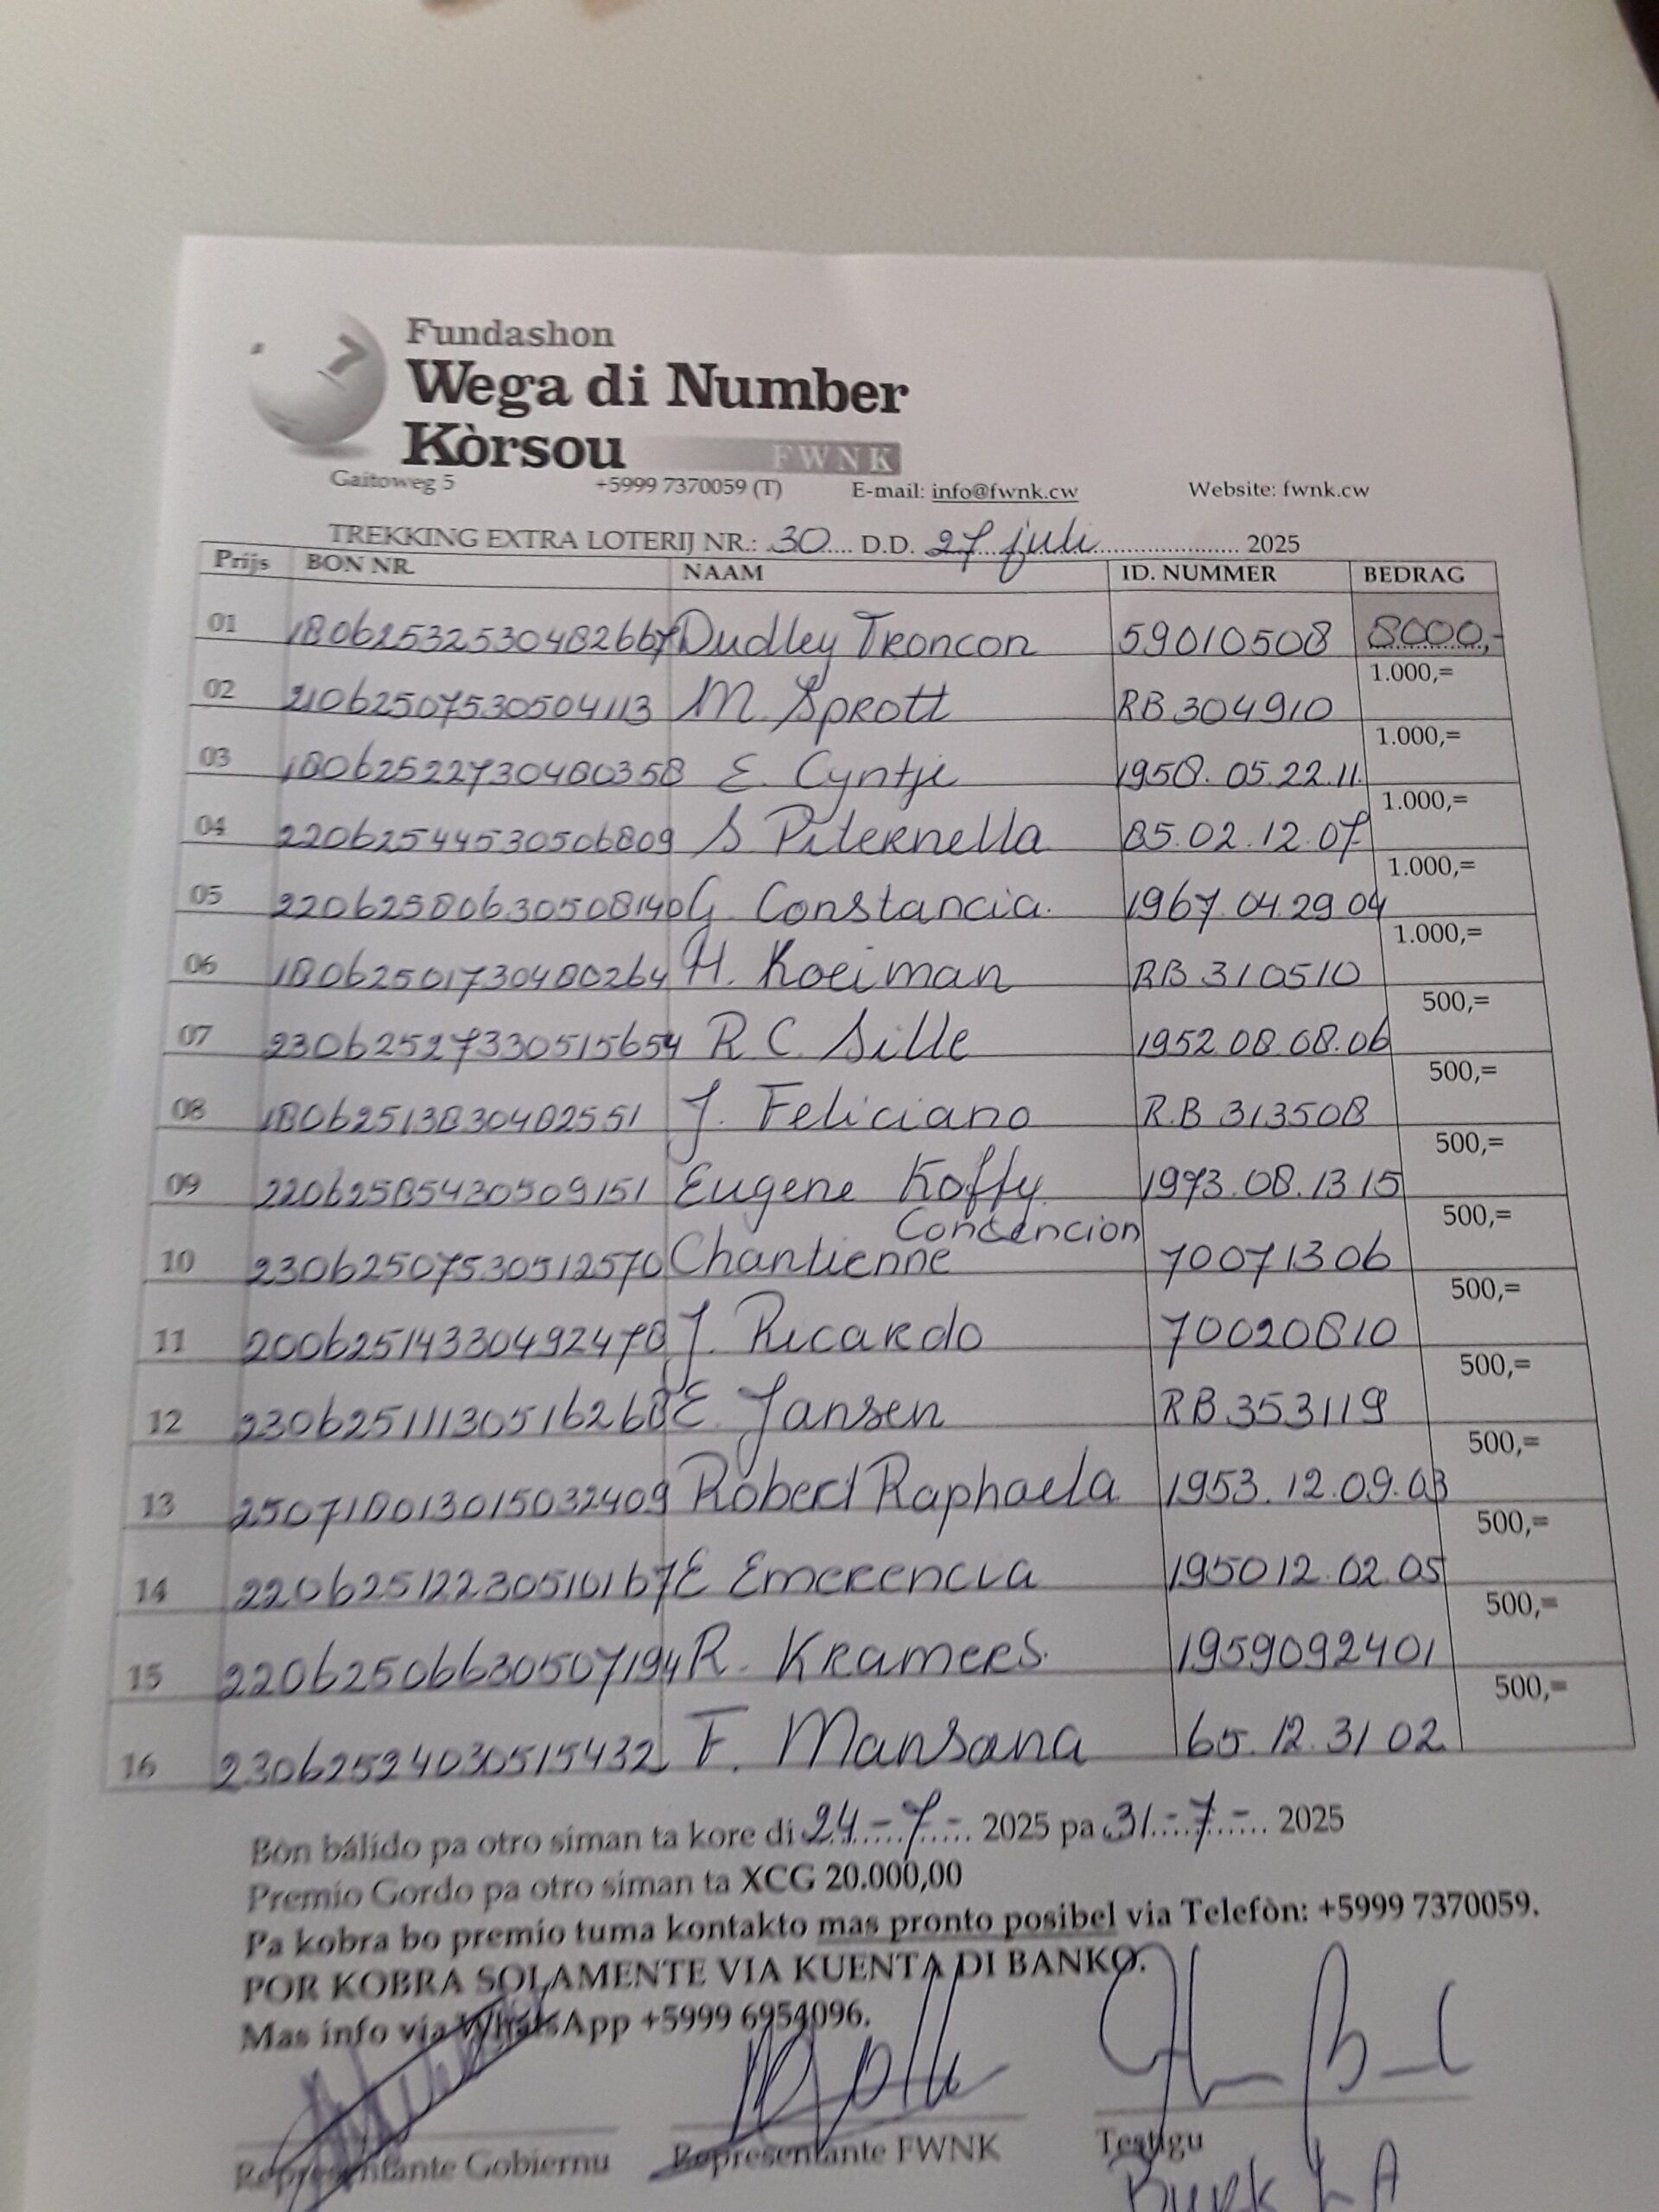 Fundashon
Wega di Number
Kòrsou FWNK
Gaitoweg 5 +5999 7370059 (T) E-mail: info@fwnk.cw Website: fwnk.cw
TREKKING EXTRA LOTERIJ NR.: 30 D.D. 27 juli 2025
Prijs BON NR. NAAM ID. NUMMER BEDRAG
01 18062532530482667 Dudley Troncon 59010508 8000,-
02 21062507530504113 M. Sprott RB 304910 1.000,=
03 18062522730480358 E. Cyntje 1958.05.22.11. 1.000,=
04 22062544530506809 S Piternella 85.02.12.07 1.000,=
05 22062580630508140 G. Constancia. 1967.04.29 04 1.000,=
06 18062501730480264 H. Koeiman RB 310510 1.000,=
07 23062527330515654 R.C. Sille 1952 08.08.06 500,=
08 18062513830482551 J. Feliciano R.B 313508 500,=
09 22062585430509151 Eugene Koffy 1973.08.13.15 500,=
10 23062507530512570 Chantienne Concencion 70071306 500,=
11 20062514330492478 J. Ricardo 70020810 500,=
12 23062511130516268 E. Jansen RB 353119 500,=
13 2507180013015032409 Robert Raphaela 1953.12.09.03 500,=
14 22062512230510167 E Emerencia 195012.02.05 500,=
15 22062506630507194 R. Kramers. 1959092401 500,=
16 23062524030515432 F. Mansana 65.12.31 02 500,=
Bon bálido pa otro siman ta kore di 24-7- 2025 pa 31-7- 2025
Premio Gordo pa otro siman ta XCG 20.000,00
Pa kobra bo premio tuma kontakto mas pronto posibel via Telefòn: +5999 7370059.
POR KOBRA SOLAMENTE VIA KUENTA DI BANKO.
Mas info via WhatsApp +5999 6954096.
Representante Gobiernu Representante FWNK Testigu